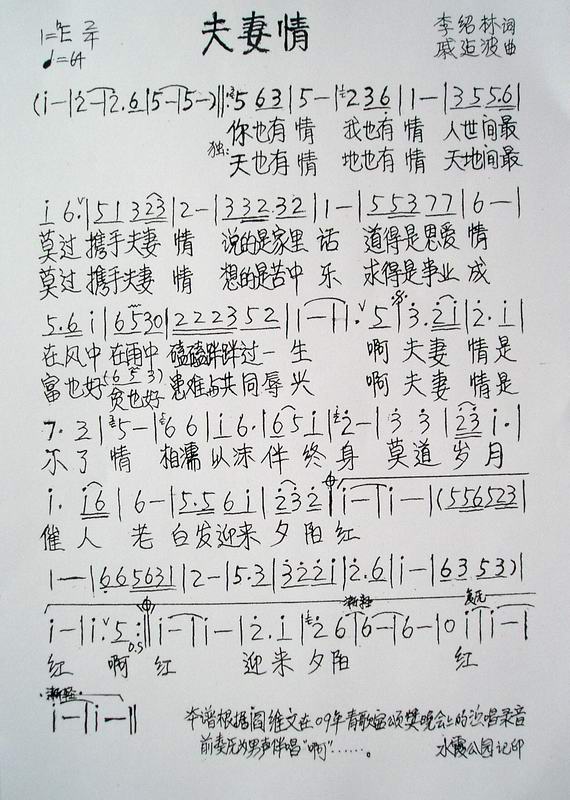 夫妻情
1=♮E 2/4
♩=64
李绍林词
戚建波曲
(i－|2－|2.6|5－|5－)‖:563|5－|236|1－|355.6|
你也有 情 我也有 情 人世间最
独:
天也有 情 地也有 情 天地间最
i 6.|51323|2－|332.32|1－|55377|6－|
莫过 携手夫妻 情 说的是家里 话 道得是恩爱 情
莫过 携手夫妻 情 想的是苦中 乐 求得是事业 成
5.6 i|6530|2223 52|1－|1. 5|3.2i|2.i|
在风中 在雨中 磕磕跘跘过一 生 啊 夫妻 情是
富也好(65 3)贫也好 患难与共同辱 兴 啊 夫妻 情是
7. 2|5－|66|i6.|65i|2－|3 3|23 i.|
不了 情 相濡 以沫 伴 终 身 莫道 岁 月
i. i6|6－|5.56i|232|i－|i－|(556523|
催 人 老 白发迎来 夕 阳 红
1－－|665631|2－|5.3|322i|2.6|i－|6353)|
渐轻 减元
i－|i. 5:‖i－|i－|2.i|26|6－|6－|0i|i－|
D.S
红 啊 红 迎来 夕阳 红
渐轻
i－|i－‖
本谱根据阎维文在09年青歌赛颁奖晚会上的演唱录音
前奏处为男声伴唱"啊"……。 水霞公园记印